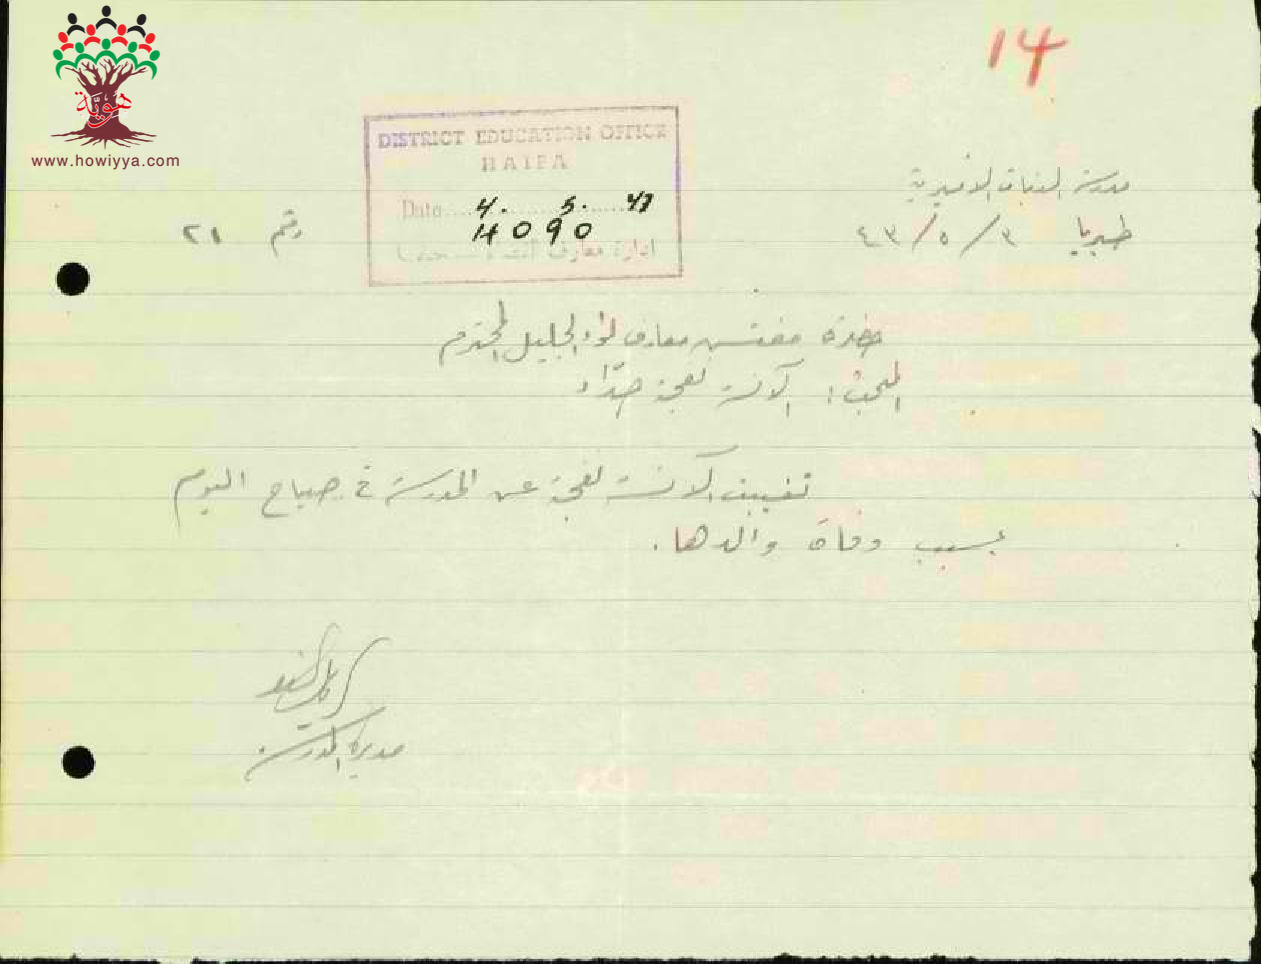 14
هوية
www.howiyya.com
DISTRICT EDUCATION OFFICE
HAIFA
Date 4. 5. 43
4090
ادارة معارف
مدرسة البنات الاميرية
طبريا ٣/٥/٤٣
رقم ٢١
حضرة مفتش معارف لواء الجليل المحترم
المبحث: الآنسة نعجة حداد
تغيبت الآنسة نعجة عن المدرسة في صباح اليوم
بسبب وفاة والدها.
مديرة المدرسة